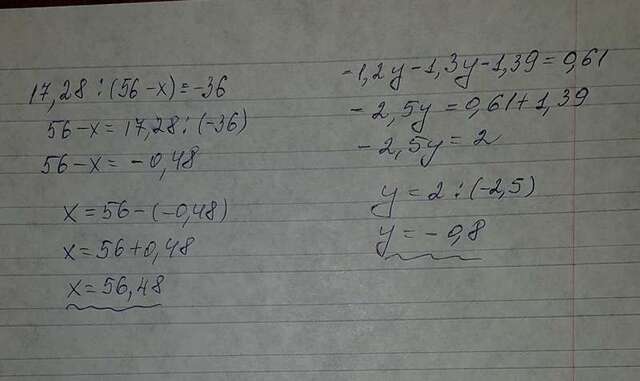 17,28 : (56 - x) = -36
56 - x = 17,28 : (-36)
56 - x = -0,48
x = 56 - (-0,48)
x = 56 + 0,48
x = 56,48
-1,2y - 1,3y - 1,39 = 0,61
-2,5y = 0,61 + 1,39
-2,5y = 2
y = 2 : (-2,5)
y = -0,8